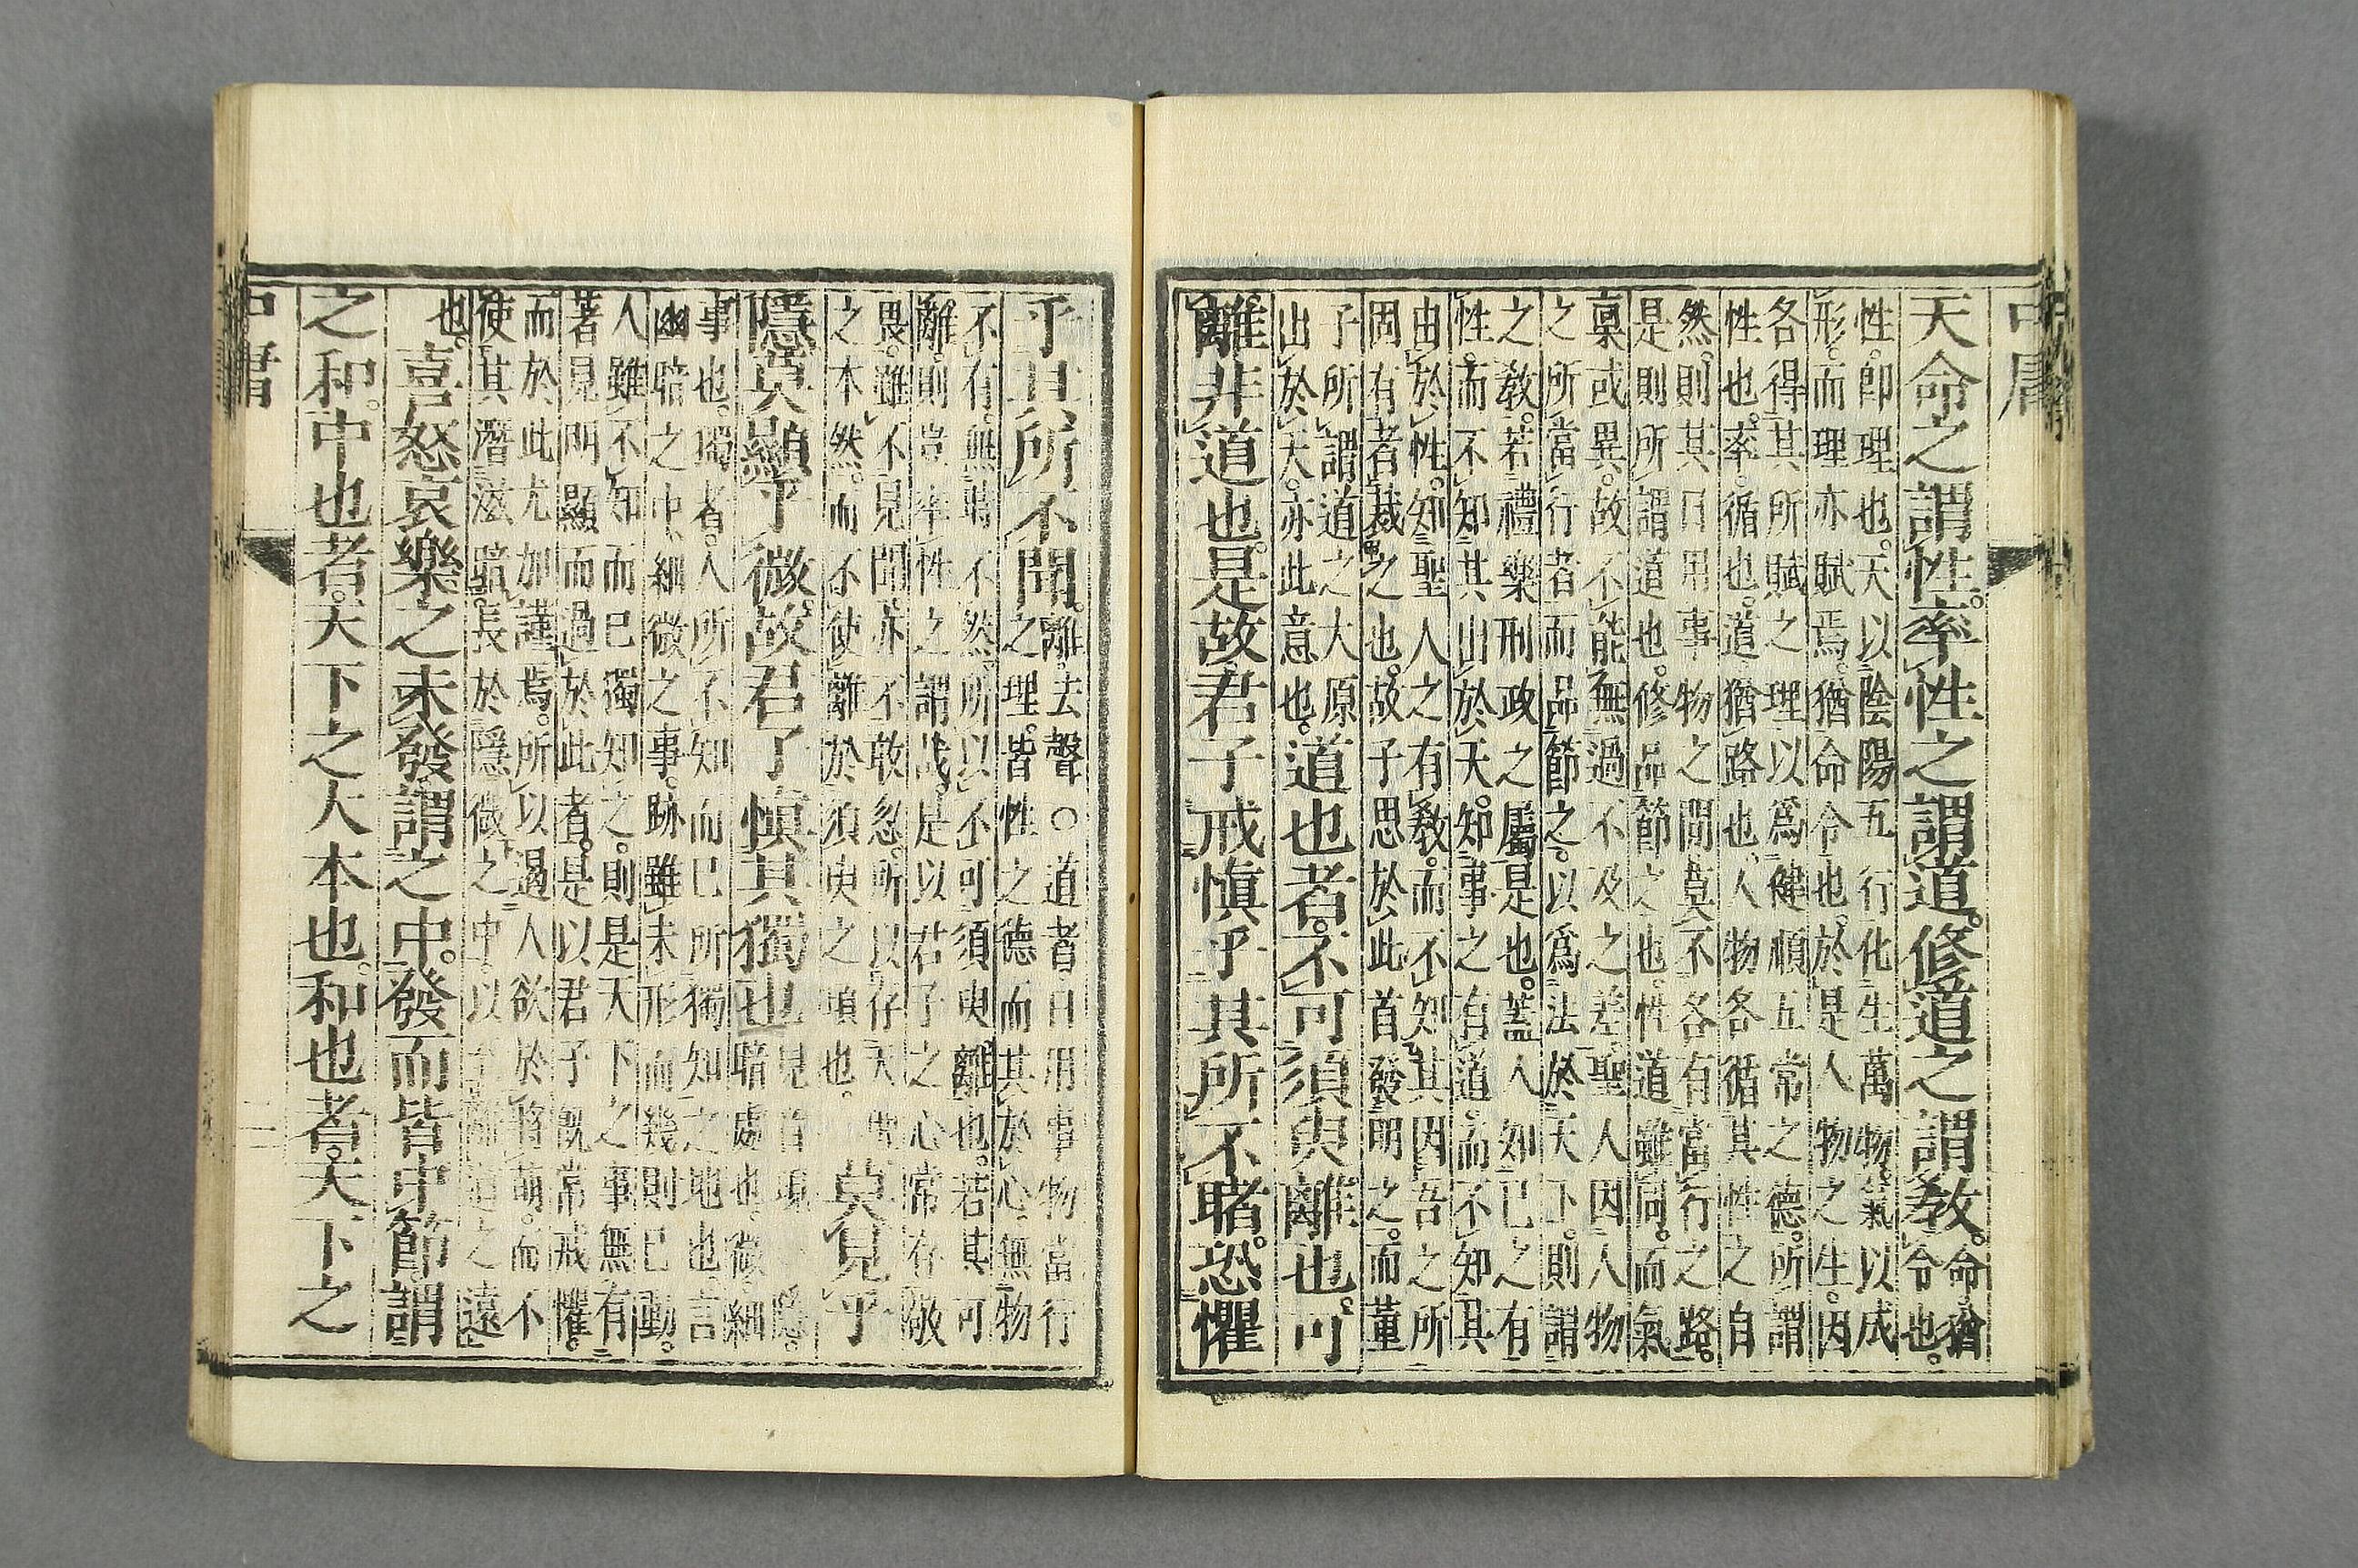 中庸
天命之謂性。率性之謂道。修道之謂教。命猶
令也。
性。即理也。天以陰陽五行化生萬物。氣以成
形。而理亦賦焉。猶命令也。於是人物之生。因
各得其所賦之理以爲健順五常之德。所謂
性也。率。循也。道猶路也。人物各循其性之自
然。則其日用事物之間莫不各有當行之路。
是則所謂道也。修品節之也。性道雖同。而氣
稟或異。故不能無過不及之差。聖人因人物
之所當行者而品節之。以爲法於天下。則謂
之教。若禮樂刑政之屬是也。蓋人知己之有
性。而不知其出於天。知事之有道。而不知其
由於性。知聖人之有教。而不知其因吾之所
固有者裁之也。故子思於此首發明之。而董
子所謂道之大原
出於天。亦此意也。道也者。不可須臾離也。可
離非道也。是故君子戒慎乎其所不睹。恐懼
乎其所不聞。離去聲○道者日用事物當行
之理。皆性之德而其於心無物
不有。無時不然。所以不可須臾離也。若其可
離。則豈率性之謂哉。是以君子之心常存敬
畏。雖不見聞亦不敢忽。所以存天理
之本然。而不使離於須臾之頃也。莫見乎
隱莫顯乎微。故君子慎其獨也見音現 隱。
暗處也。微。細
事也。獨者。人所不知而己所獨知之地也。言
幽暗之中。細微之事。跡雖未形而幾則已動。
人雖不知而己獨知之。則是天下之事無有
著見明顯而過於此者。是以君子既常戒懼。
而於此尤加謹焉。所以遏人欲於將萌。而不
使其潛滋暗長於隱微之中。以至離道之遠
也。喜怒哀樂之未發謂之中。發而皆中節謂
之和。中也者。天下之大本也。和也者。天下之
中庸
二